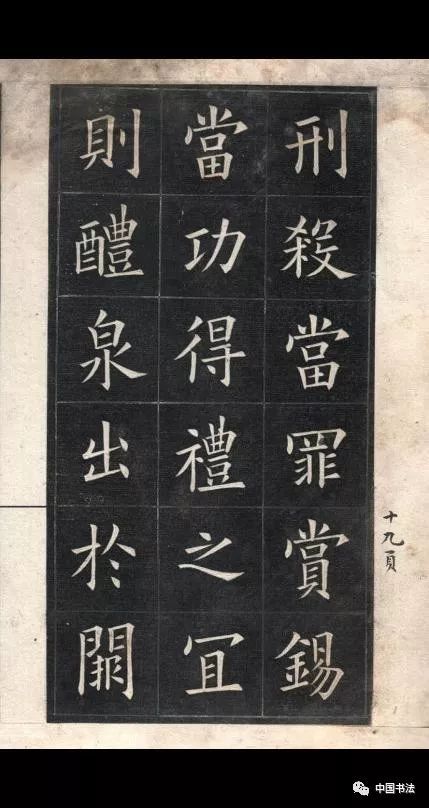 刑殺當罪賞錫
當功得禮之冝
則醴泉出於闕
十九頁
中国书法